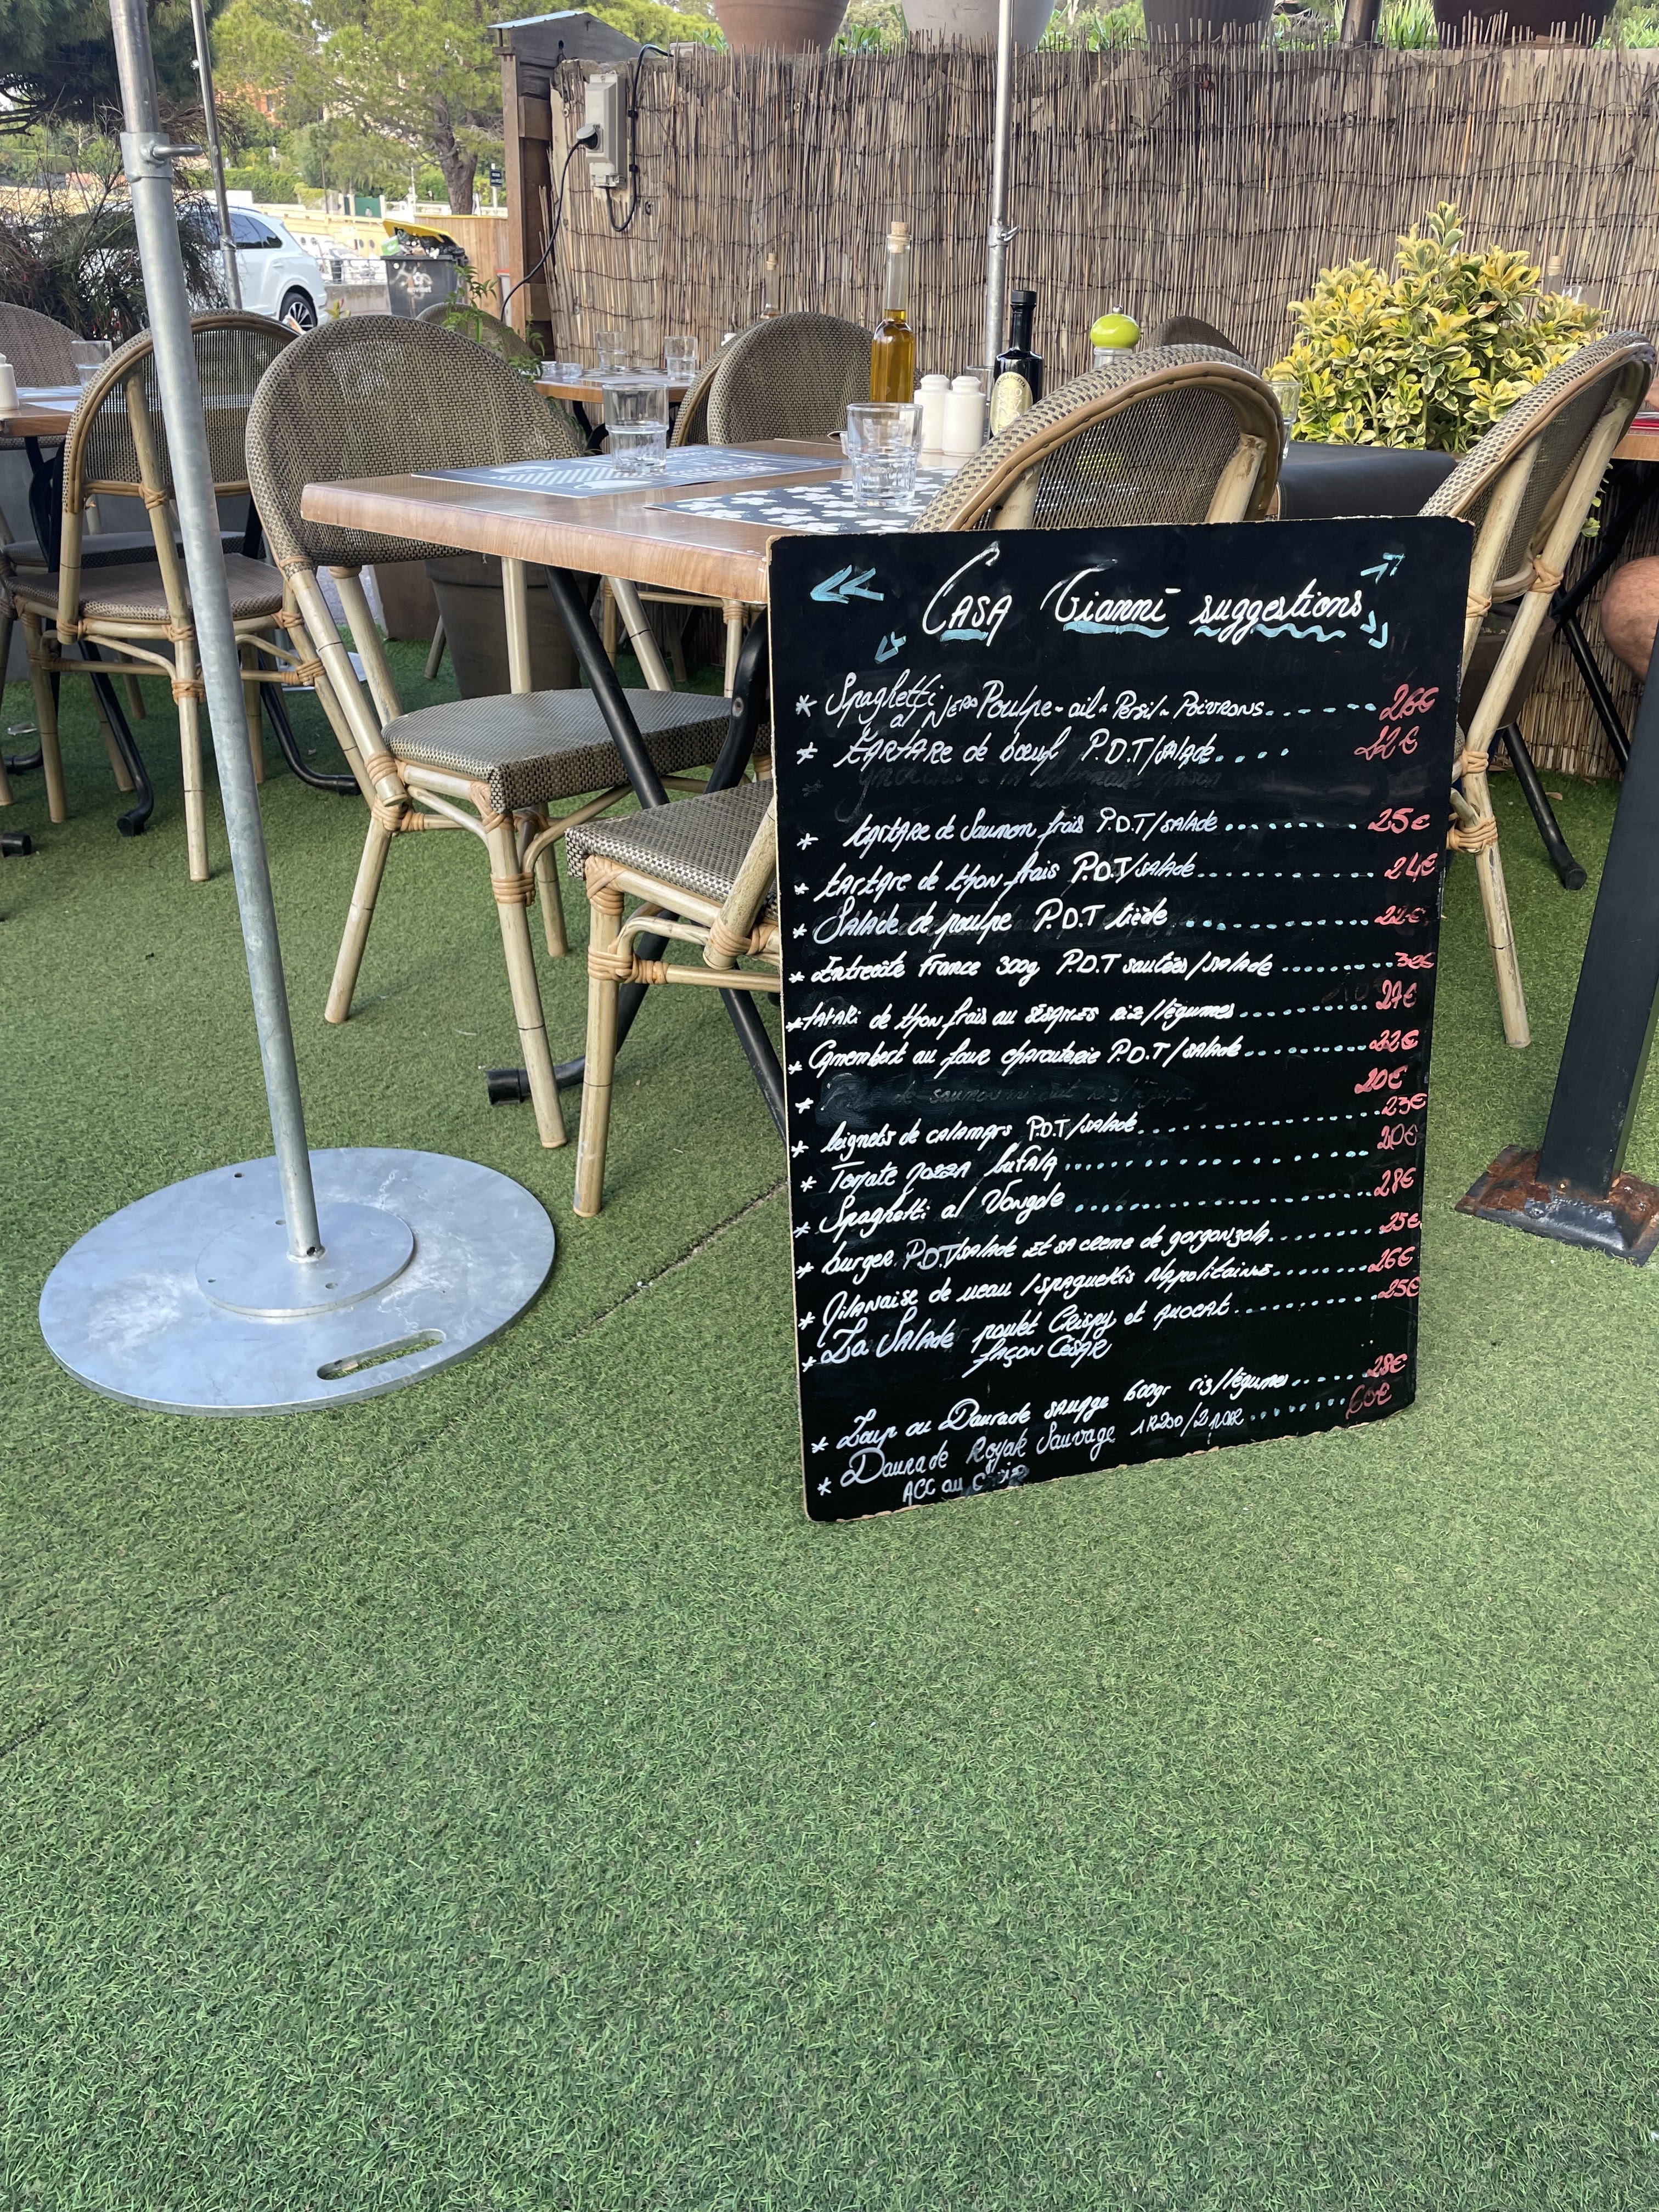 CASA Gianni suggestions
* Spaghetti al Nero Poulpe - ail - Persil - Poivrons 26€
* tartare de bœuf P.D.T/salade 22€
* tartare de Saumon frais P.D.T/salade 25€
* tartare de thon frais P.D.T/salade 24€
* Salade de poulpe P.D.T tiède 22€
* Entrecôte France 300g P.D.T sautées/salade
* tataki de thon frais au sésames riz/légumes 27€
* Camembert au four charcuterie P.D.T/salade 22€
* 20€
* beignets de calamars P.D.T/salade 23€
* Tomate mozza bufala 20€
* Spaghetti al Vongole 28€
* burger P.D.T/salade et sa creme de gorgonzola 25€
* Milanaise de veau / spaguettis Napolitaines 26€
* La Salade poulet Crispy et avocat 25€
façon César
* Loup ou Daurade sauvage 600gr riz/légumes 28€
* Daurade Royale Sauvage 1K200/2 pour 60€
ACC au